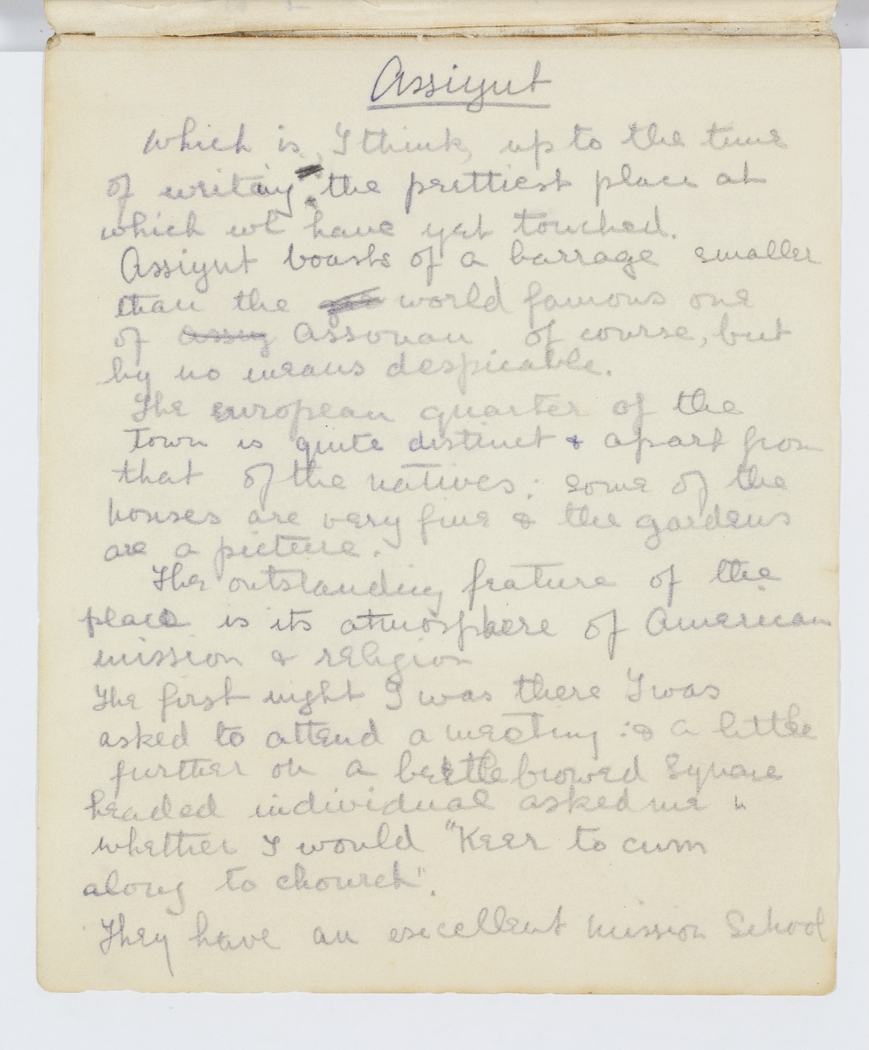 Assiyut
which is, I think, up to the time
of writing the prettiest place at
which we have yet touched.
Assiyut boasts of a barrage smaller
than the world famous one
of Assiy Assouan of course, but
by no means despicable.
The european quarter of the
town is quite distinct & apart from
that of the natives; some of the
houses are very fine & the gardens
are a picture.
The outstanding feature of the
place is its atmosphere of American
mission & religion
The first night I was there I was
asked to attend a meeting : & a little
further on a beetle browed square
headed individual asked me "
whether I would "Keer to cum
along to chourch".
They have an excellent mission School